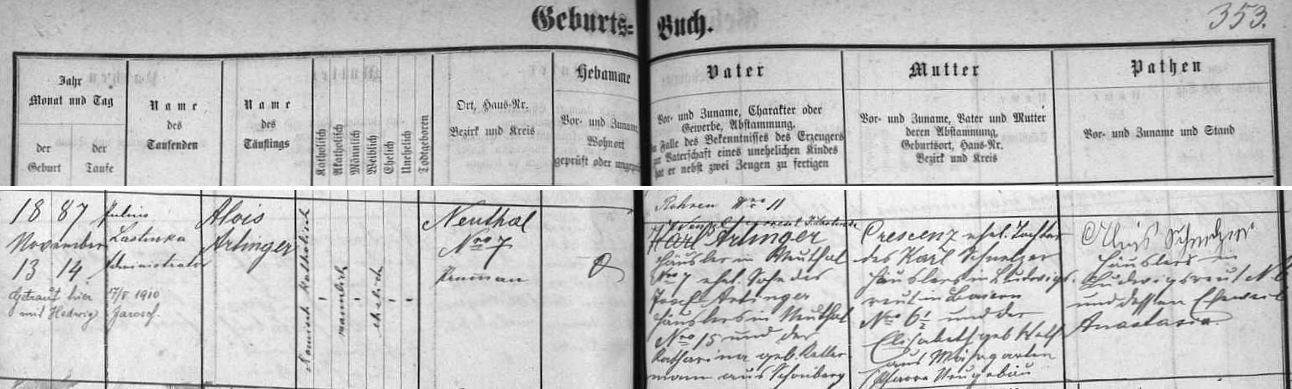 Geburts-Buch.
353.
Jahr
Monat und Tag
der
Geburt
der
Taufe
Name
des
Taufenden
Name
des
Täuflings
Katholisch
Akatholisch
Männlich
Weiblich
Ehelich
Unehelich
Todtgeboren
Ort, Haus-Nr.
Bezirk und Kreis
Hebamme
Vor- und Zuname
Wohnort
geprüft oder ungeprü
Vater
Vor- und Zuname, Charakter oder
Gewerbe, Abstammung.
Falle des Bekenntnisses des Erzeugers
zur Vaterschaft eines unehelichen Kindes
hat er nebst zwei Zeugen zu fertigen
Mutter
Vor- und Zuname, Vater und Mutter
deren Abstammung,
Geburtsort, Haus-Nr.
Bezirk und Kreis
Pathen
Vor- und Zuname und Stand
1887
November
13 14
Getraut hier 7/5 1910
mit Hedwig
Julius
Lastinka
Administrator
Alois
Artinger
Römisch katholisch
männlich
ehelich
Neuthal
No 7
Nro 11
Karl Artinger
Häusler in Neuthal
No 7 ehel. Sohn des
Artinger
Häuslers in Neuthal
No 15 und der
Katharina geb.
aus
Crescenz ehel. Tochter
des Karl
Häuslers in Ludwigs-
reut in Baiern
No 6½ und der
Elisabeth geb.
aus
Pfarre
Alois
Häusler in
Ludwigsreut
und dessen Eheweib
Anastasia